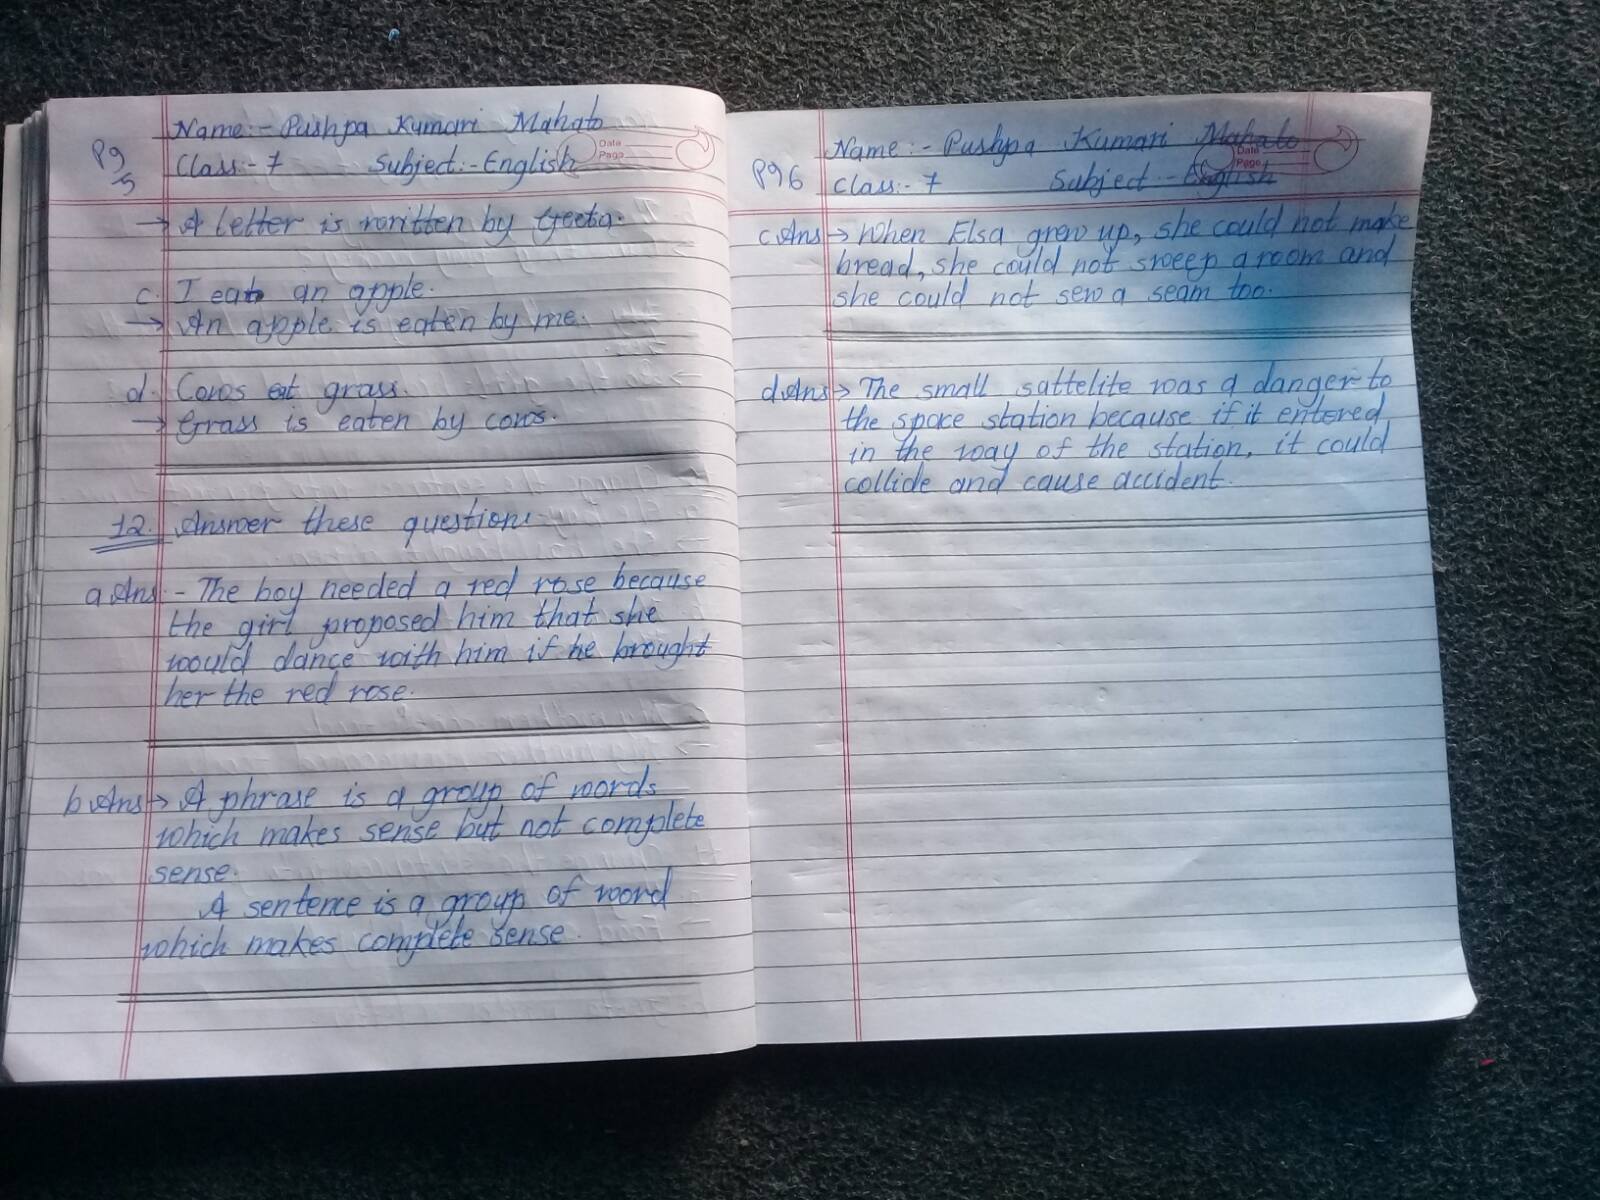 Pg 5
Name:- Pushpa Kumari Mahato
Class:- 7 Subject:- English
Date
Page
→ A letter is written by Geeta.
c. I eat an apple.
→ An apple is eaten by me.
d. Cows eat grass.
→ Grass is eaten by cows.
12. Answer these question:-
a Ans:- The boy needed a red rose because
the girl proposed him that she
would dance with him if he brought
her the red rose.
b Ans → A phrase is a group of words
which makes sense but not complete
sense.
A sentence is a group of word
which makes complete sense.
Pg 6
Name:- Pushpa Kumari Mahato
Class:- 7 Subject:- English
Date
Page
c Ans → When Elsa grew up, she could not make
bread, she could not sweep a room and
she could not sew a seam too.
d Ans → The small sattelite was a danger to
the space station because if it entered
in the way of the station, it could
collide and cause accident.